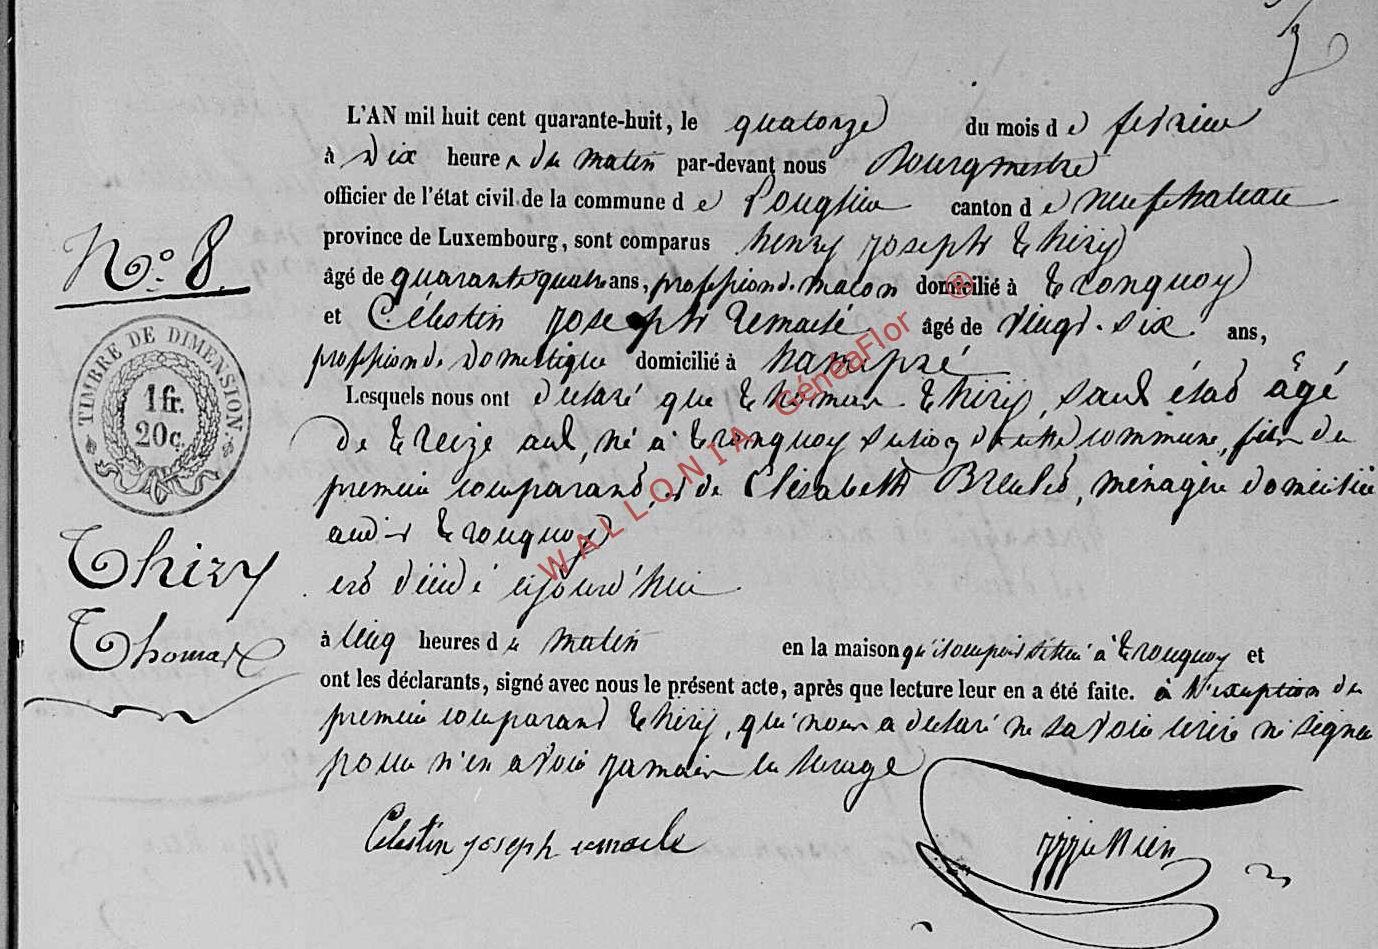 L'AN mil huit cent quarante-huit, le quatorze du mois de fevrier
à Dix heures du matin par-devant nous Bourgmestre
officier de l'état civil de la commune de Longlier canton de neufchateau
province de Luxembourg, sont comparus henry joseph thiry
âgé de quarante quatre ans, profession de maçon domicilié à tronquoy
et Célestin joseph remacle âgé de vingt-six ans,
profession de Domestique domicilié à hamipré
Lesquels nous ont declaré que thomas thiry, sans état âgé
de treize ans, né à tronquoy section de cette commune, fils du
premier comparant, et de Elisabeth, ménagère domiciliée
audit tronquoy
est décédé aujourd'hui
à cinq heures du matin en la maison qu'il occupait située à tronquoy et
ont les déclarants, signé avec nous le présent acte, après que lecture leur en a été faite. à l'exception du
premier comparant thiry, qui nous a declaré ne savoir ecrire ni signer
pour n'en avoir jamais eu l'usage
Celestin joseph remacle
N.º 8.
TIMBRE DE DIMENSION
1 fr.
20 c.
Thiry
Thomas
WALLONIA GénéaFlor
®